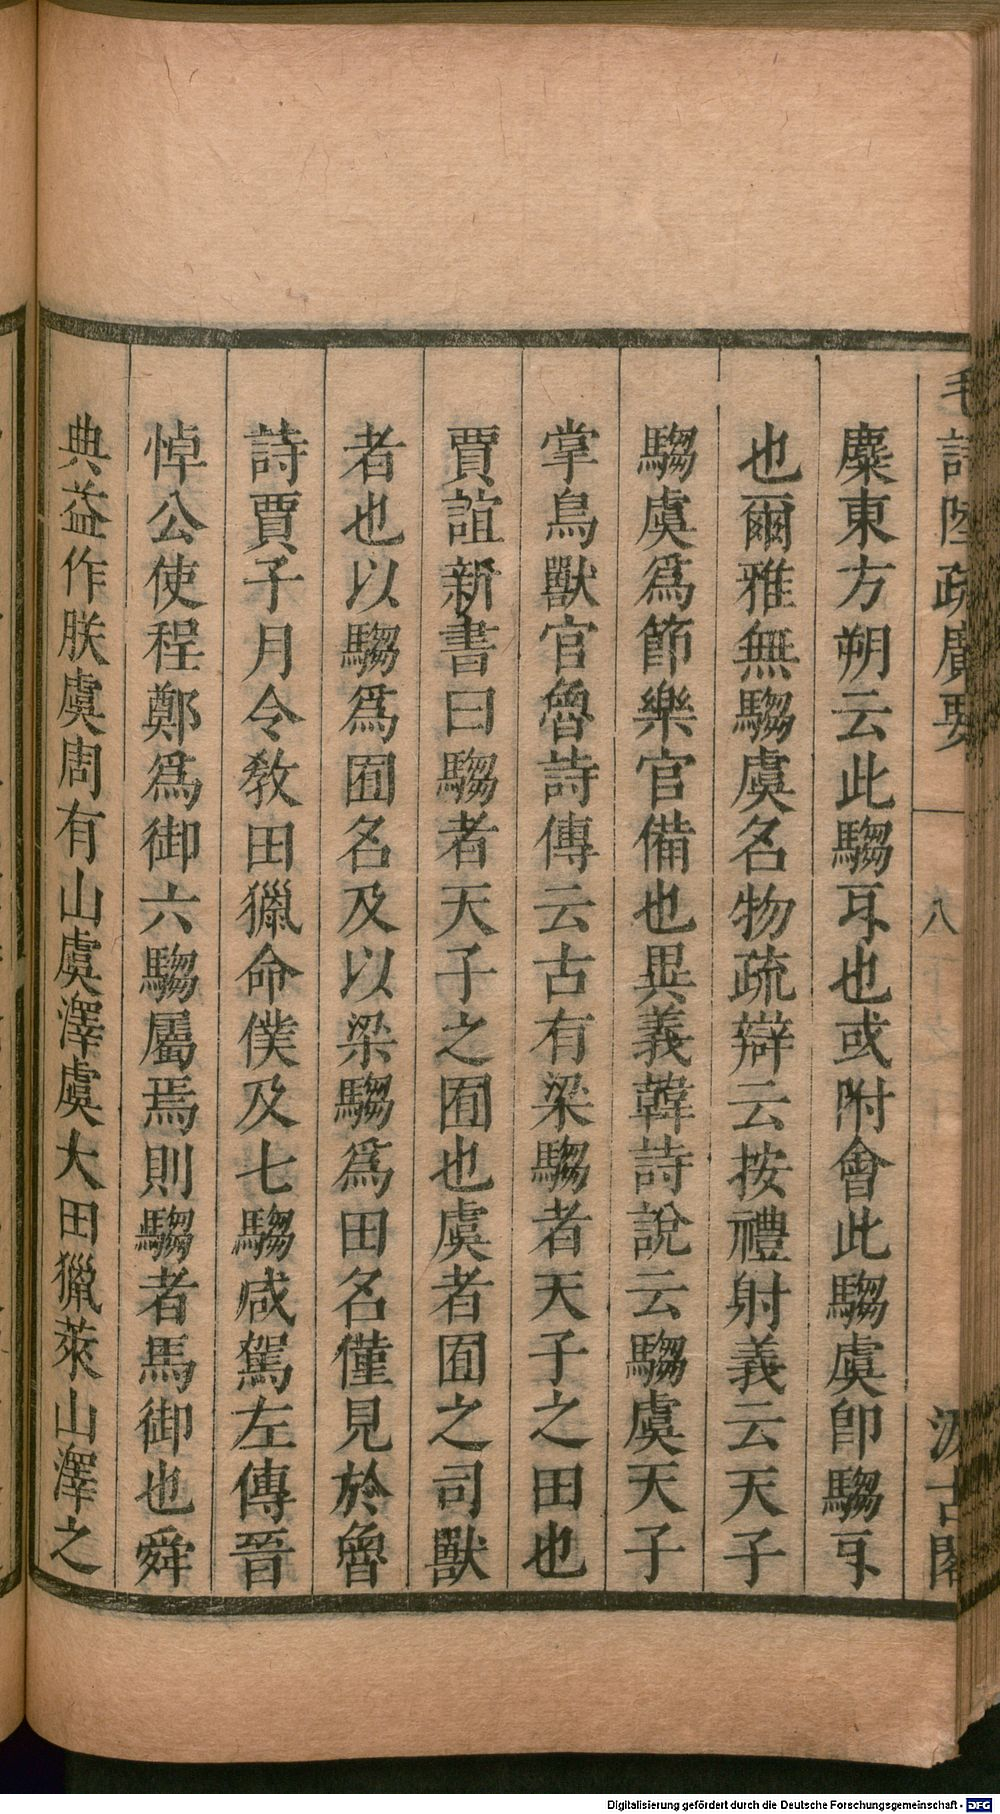 毛詩陸疏廣要
八
汲古閣
麋東方朔云此騶牙也或附會此騶虞卽騶牙
也爾雅無騶虞名物疏辯云按禮射義云天子
騶虞爲節樂官備也異義韓詩說云騶虞天子
掌鳥獸官魯詩傳云古有梁騶者天子之田也
賈誼新書曰騶者天子之囿也虞者囿之司獸
者也以騶爲囿名及以梁騶爲田名僅見於魯
詩賈子月令敎田獵命僕及七騶咸駕左傳晉
悼公使程鄭爲御六騶屬焉則騶者馬御也舜
典益作朕虞周有山虞澤虞大田獵萊山澤之
Digitalisierung gefördert durch die Deutsche Forschungsgemeinschaft - DFG